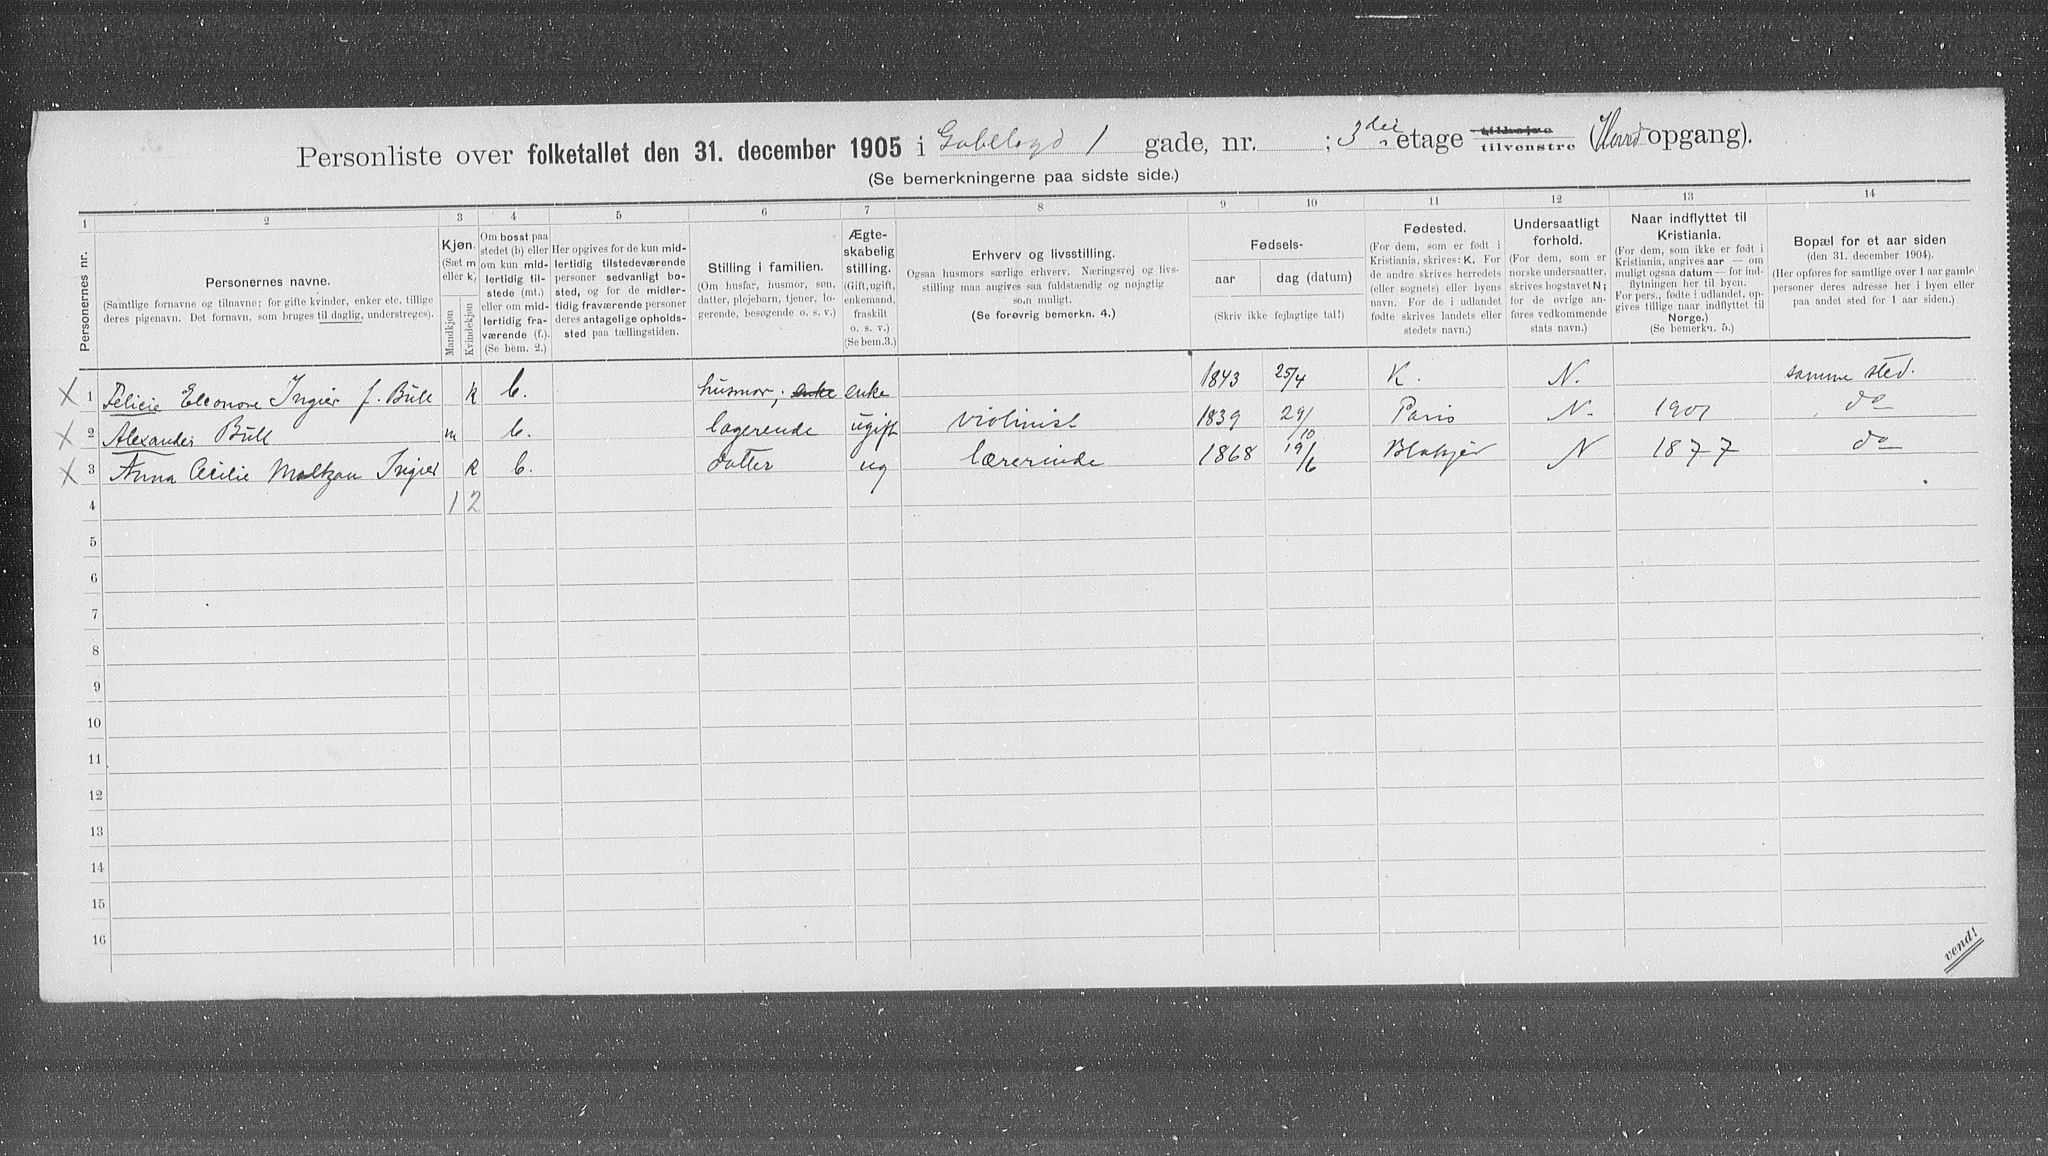 Personliste over folketallet den 31. december 1905 i Gabelsgd 1 gade, nr. ; 3die etage tilhøjre tilvenstre (Hoved opgang).
(Se bemerkningerne paa sidste side.)
1 2 3 4 5 6 7 8 9 10 11 12 13 14
Personernes nr.
Personernes navne.
(Samtlige fornavne og tilnavne; for gifte kvinder, enker etc. tillige
deres pigenavn. Det fornavn, som bruges til daglig, understreges).
Kjøn.
(Sæt m
eller k)
Mandkjøn
Kvindekjøn
Om bosat paa
stedet (b) eller
om kun mid-
lertidig til-
stede (mt.)
eller om mid-
lertidig fra-
værende (f.).
(Se bem. 2.)
Her opgives for de kun mid-
lertidig tilstedeværende
personer sedvanligt bo-
sted, og for de midler-
tidig fraværende personer
deres antagelige opholds-
sted paa tællingstiden.
Stilling i familien.
(Om husfar, husmor, søn,
datter, plejebarn, tjener, lo-
gerende, besøgende o. s. v.)
Ægte-
skabelig
stilling.
(Gift, ugift,
enkemand,
fraskilt
o. s. v.)
(Se bem.3.)
Erhverv og livsstilling.
Ogsaa husmors særlige erhverv. Næringsvej og livs-
stilling maa angives saa fuldstændig og nøjagtig
som muligt.
(Se forøvrig bemerkn. 4.)
Fødsels-
aar dag (datum)
(Skriv ikke fejlagtige tal!)
Fødested.
(For dem, som er født i
Kristiania, skrives: K. For
de andre skrives herredets
(eller sognets) eller byens
navn. For de i udlandet
fødte skrives landets eller
stedets navn.)
Undersaatligt
forhold.
(For dem, som er
norske undersaatter,
skrives bogstavet N;
for de øvrige an-
føres vedkommende
stats navn.)
Naar indflyttet til
Kristiania.
(For dem, som ikke er født i
Kristiania, angives aar — om
muligt ogsaa datum — for ind-
flytningen her til byen.
For pers., fødte i udlandet, op-
gives tillige naar indflyttet til
Norge.)
(Se bemerkn. 5.)
Bopæl for et aar siden
(den 31. december 1904).
(Her opføres for samtlige over 1 aar gamle
personer deres adresse her i byen eller
paa andet sted for 1 aar siden.)
X 1 Felicie Eleonore Ingier f. Bull k b. husmor; enke enke 1843 25/4 K. N. samme sted.
X 2 Alexander Bull m b. logerende ugift violinist 1839 29/10 Paris N. 1901 do
X 3 Anna Cecilie Maltzau Ingier k b. datter ug lærerinde 1868 19/6 Blakjer N 1877 do
4 1 2
5
6
7
8
9
10
11
12
13
14
15
16
vend!